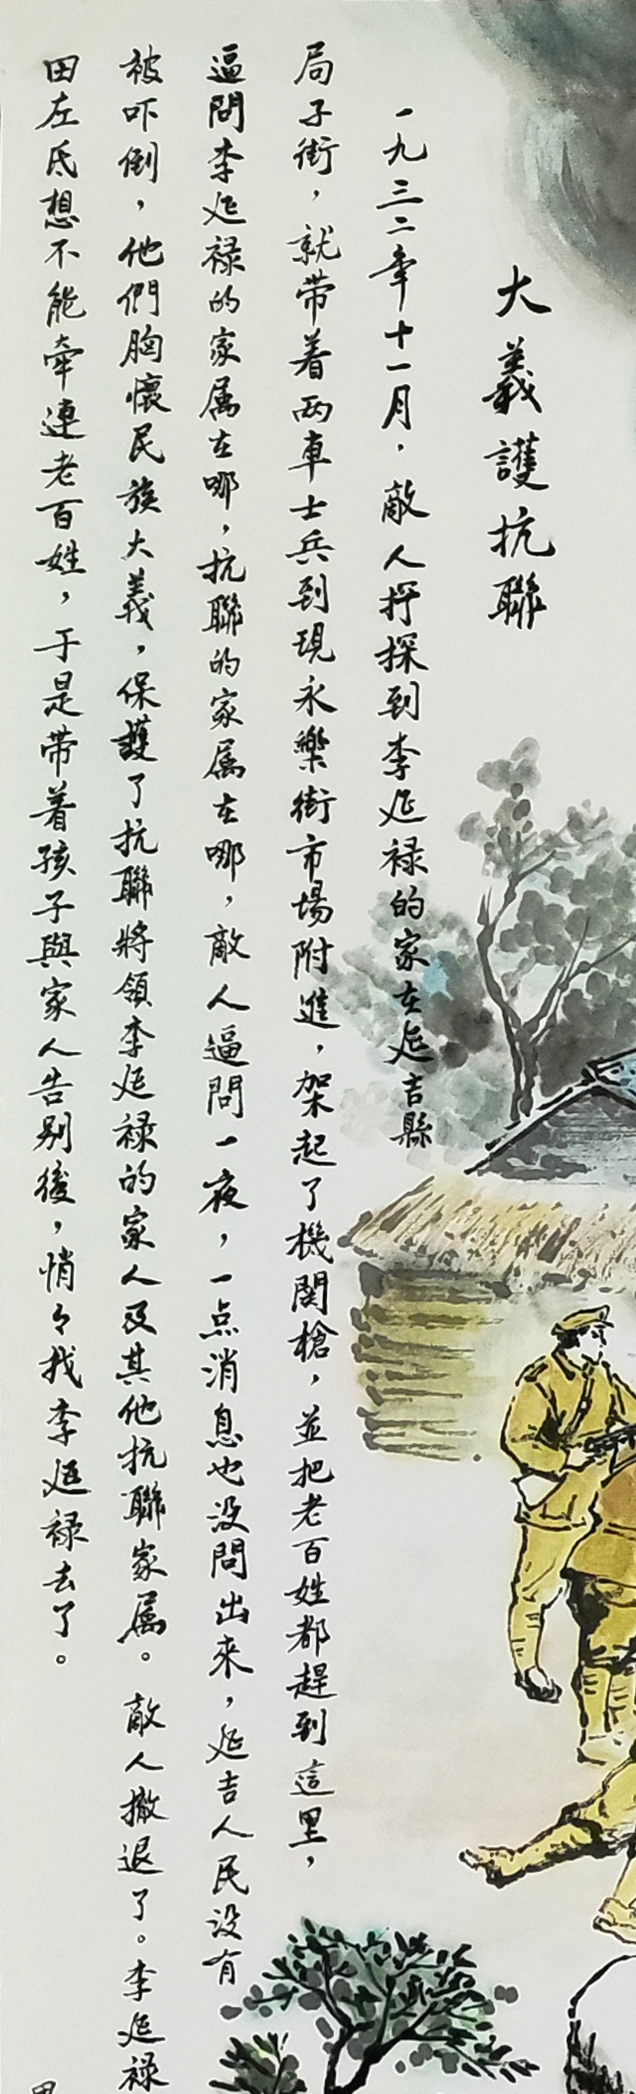 大義護抗聯
一九三二年十一月，敵人打探到李延禄的家在延吉縣
局子街，就带着两車士兵到現永樂街市場附進，架起了機関槍，並把老百姓都趕到這里，
逼問李延禄的家属在哪，抗聯的家属在哪，敵人逼問一夜，一点消息也没問出來，延吉人民没有
被吓倒，他們胸懷民族大義，保護了抗聯將領李延禄的家人及其他抗聯家属。敵人撤退了。李延禄
田左氏想不能牽連老百姓，于是带着孩子與家人告别後，悄々找李延禄去了。